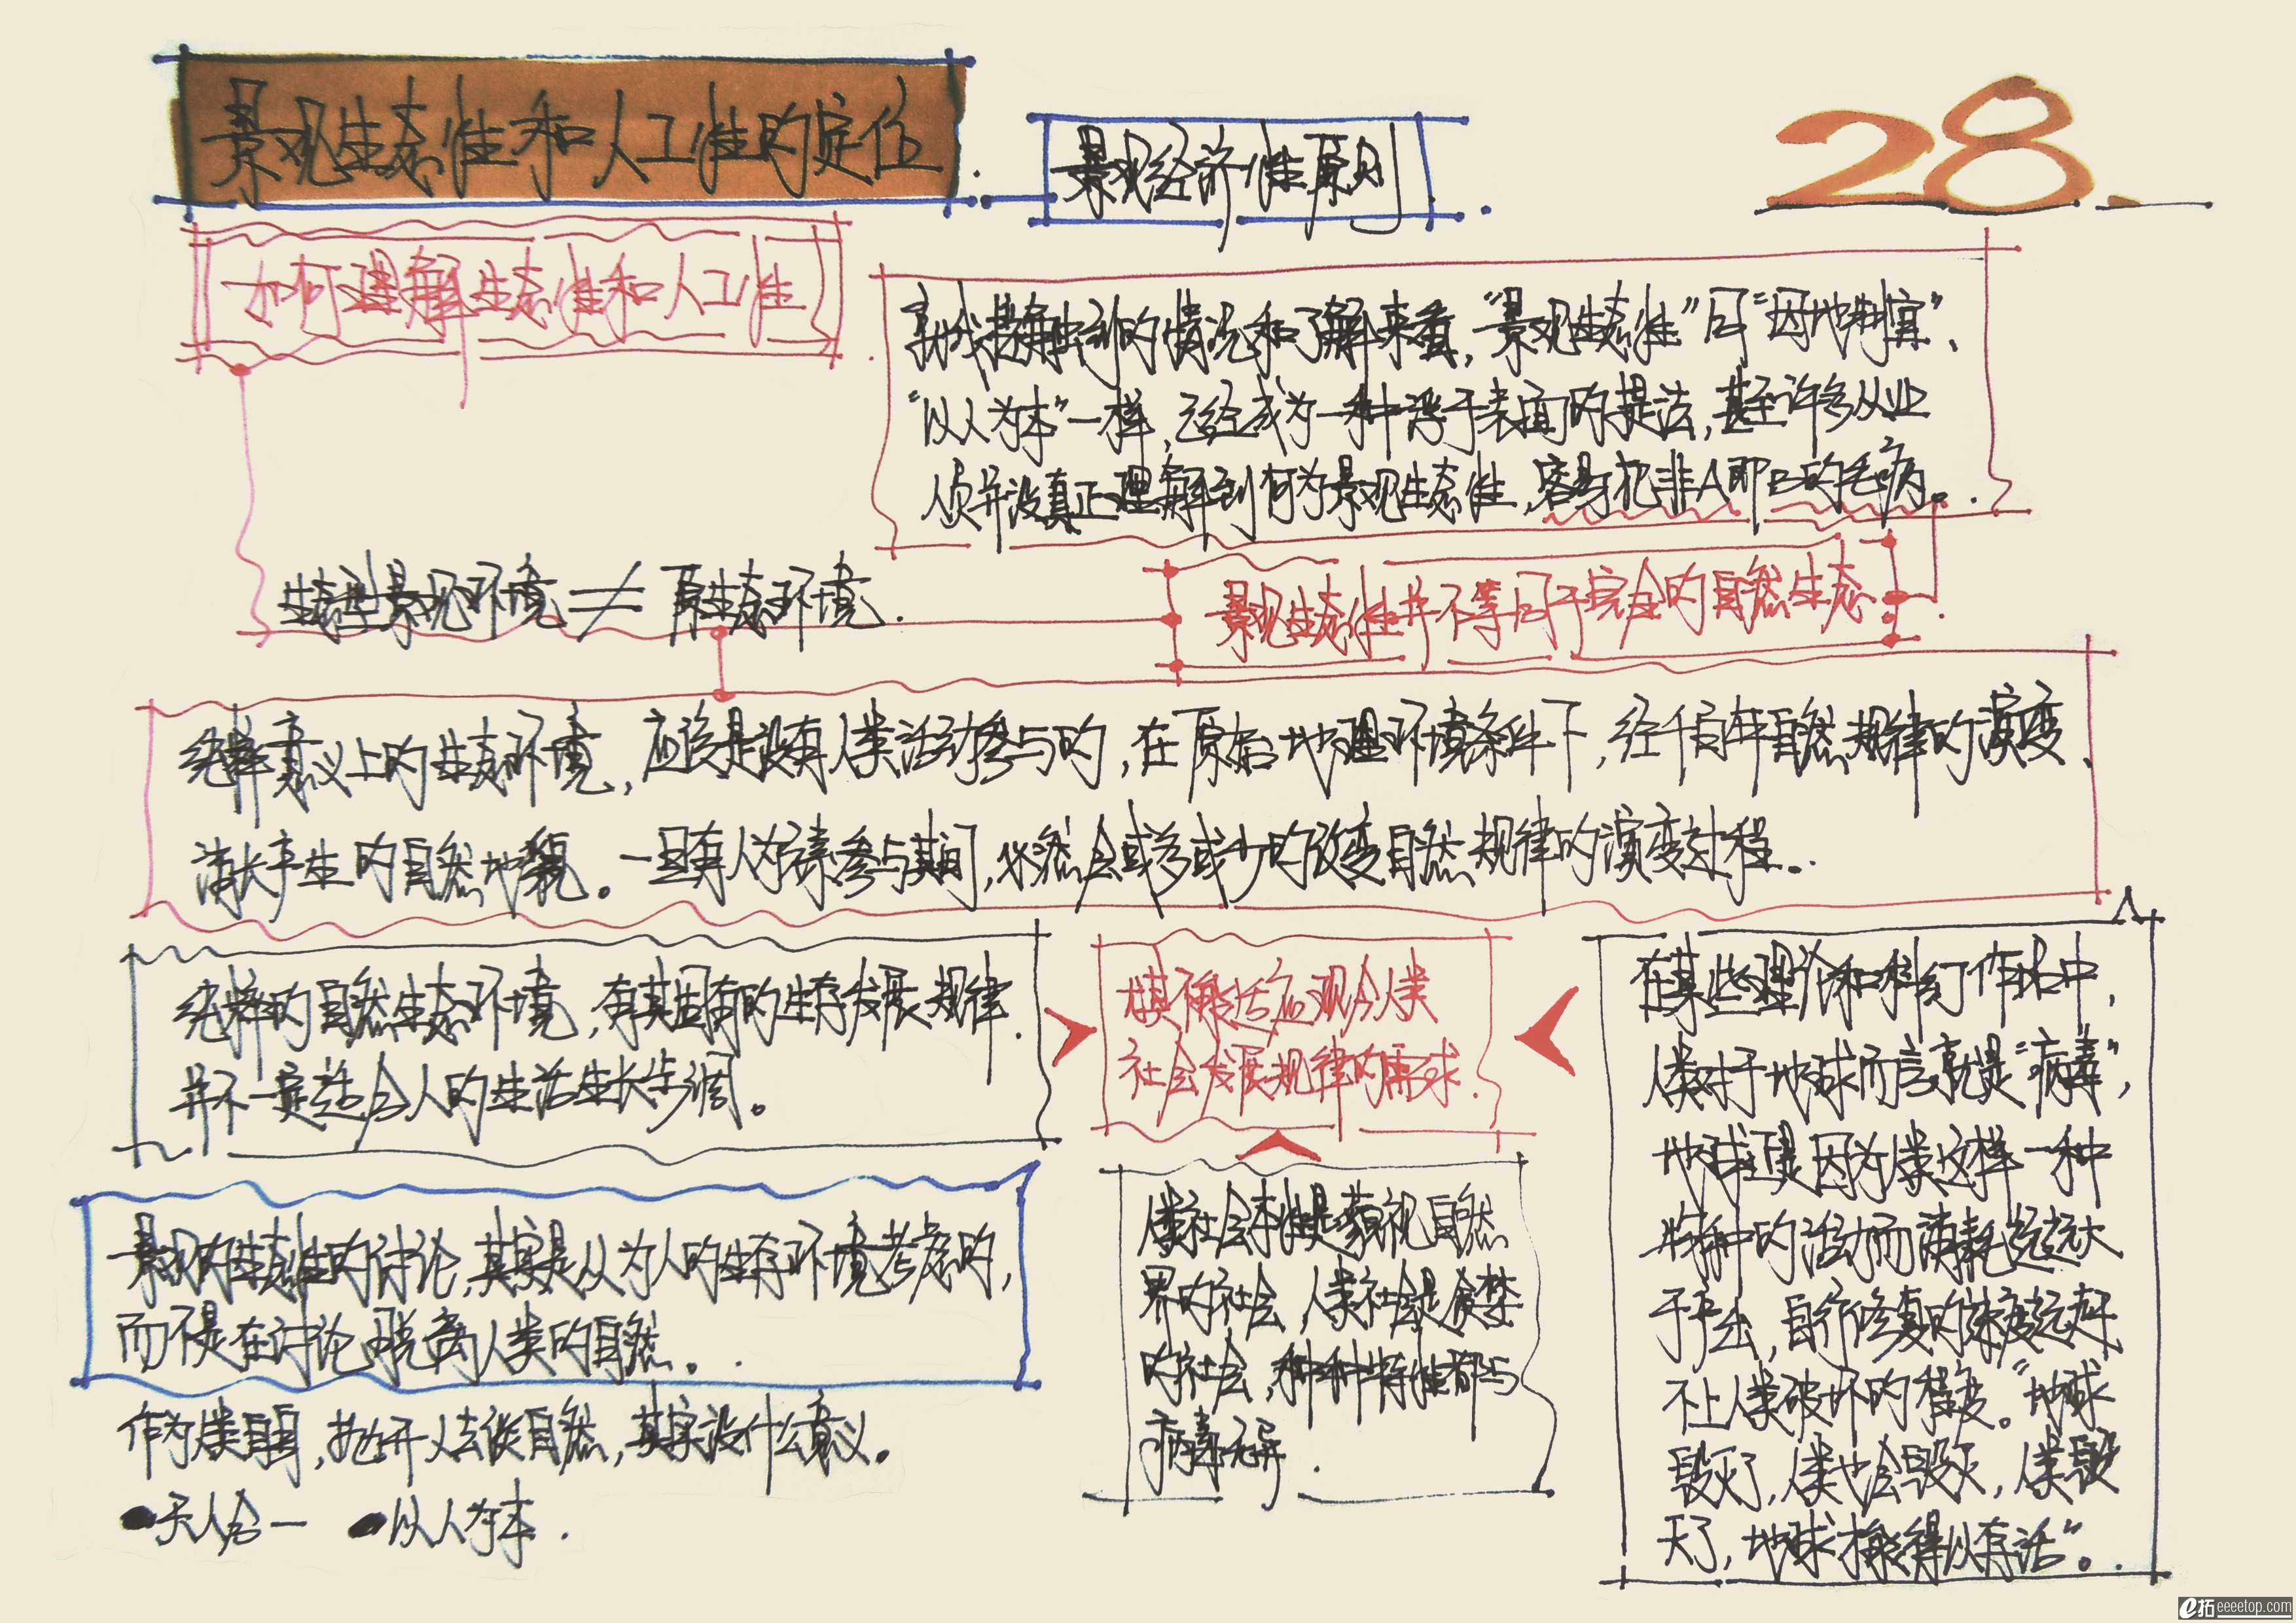 景观生态性和人工性的定位.
景观经济性原则.
28.
如何理解生态性和人工性.
就我接触到的情况和了解来看,“景观生态性”同“因地制宜”、
“以人为本”一样,已经成为一种浮于表面的提法,甚至许多从业
人员并没真正理解到何为景观生态性,容易犯非A即B的毛病。
生态型景观环境≠原生态环境.
景观生态性并不等同于完全的自然生态.
纯粹意义上的生态环境,应该是没有人类活动参与的,在原始地理环境条件下,经千百年自然规律的演变、
消长产生的自然地貌。一旦有人为因素参与其间,必然会或多或少的改变自然规律的演变过程..
纯粹的自然生态环境,有其固有的生存发展规律.
并不一定适合人的生活生长步调。
尤其不能适应现今人类
社会发展规律的需求.
在某些理论和科幻作品中,
人类对于地球而言就是“病毒”,
地球正是因为人类这样一种
物种的活动而消耗远远大
于产出,自行修复的速度远赶
不上人类破坏的程度。“地球
毁灭了,人类也会毁灭,人类毁
灭了,地球才能得以存活”。.
景观的生态性的讨论,其实是从为人的生存环境考虑的,
而不是在讨论脱离人类的自然。.
人类社会本性是藐视自然
界的社会,人类社会是贪婪
的社会,种种特性都与
病毒无异.
作为人类自身,抛开人去谈自然,其实没什么意义。
●天人合一 ●以人为本.
e拓 eeeetop.com